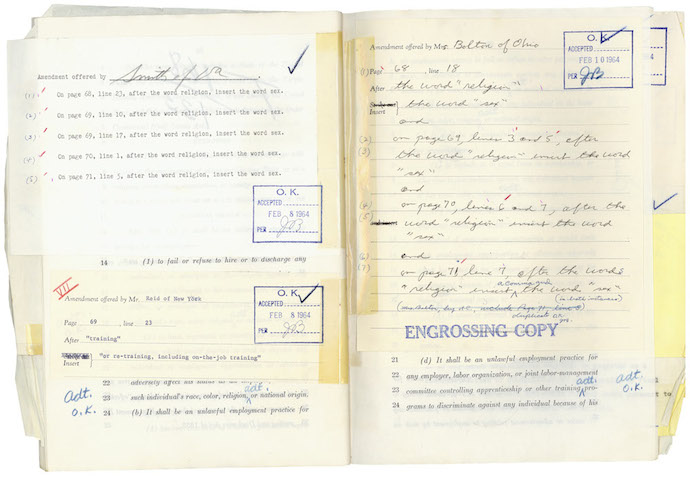 Amendment offered by Smith of Va.
(1) On page 68, line 23, after the word religion, insert the word sex.
(2) On page 69, line 10, after the word religion, insert the word sex.
(3) On page 69, line 17, after the word religion, insert the word sex.
(4) On page 70, line 1, after the word religion, insert the word sex.
(5) On page 71, line 5, after the word religion, insert the word sex.
O.K.
ACCEPTED
FEB 8 1964
PER JCB
14 (1) to fail or refuse to hire or to discharge any
VII
Amendment offered by Mr. Reid of New York
Page 69 , line 23
After "training"
Insert "or re-training, including on-the-job training"
O.K.
ACCEPTED
FEB 8 1964
PER JCB
22 adversely affect his status as an
adt.
23 such individual's race, color, religion, or national origin.
24 (b) It shall be an unlawful employment practice for
adt.
O.K.
Amendment offered by Mrs. Bolton of Ohio
(1) Page 68, line 18
After the word "religion"
Insert the word "sex"
and
(2) on page 69, lines 3 and 5, after
(3) the word "religion" insert the word
"sex"
and
(4) on page 70, lines 6 and 7, after the
(5) word "religion" insert the word
"sex"
(6) and
(7) on page 71, line 7, after the words
"religion" insert a comma and the word "sex"
O.K.
ACCEPTED
FEB 10 1964
PER JCB
ENGROSSING COPY
21 (d) It shall be an unlawful employment practice for
22 any employer, labor organization, or joint labor-management
adt.
23 committee controlling apprenticeship or other training pro-
24 grams to discriminate against any individual because of his
adt.
O.K.